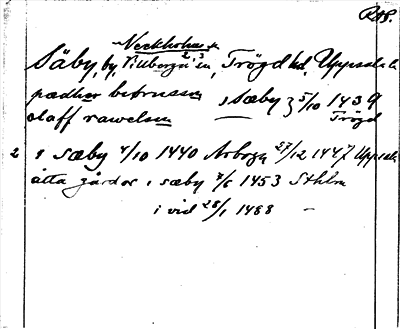 RAP.
Veckholm
Säby, by, Villberga sn, Trögd hd, Uppsala l.
pædher benusson i sæby 5/10 1439
olaff rawelson Trögd
2 i sæby 4/10 1440 Arboga 27/12 1447 Uppsala
åtta gårdar i sæby 7/6 1453 Sthlm
i vid 28/1 1488 –